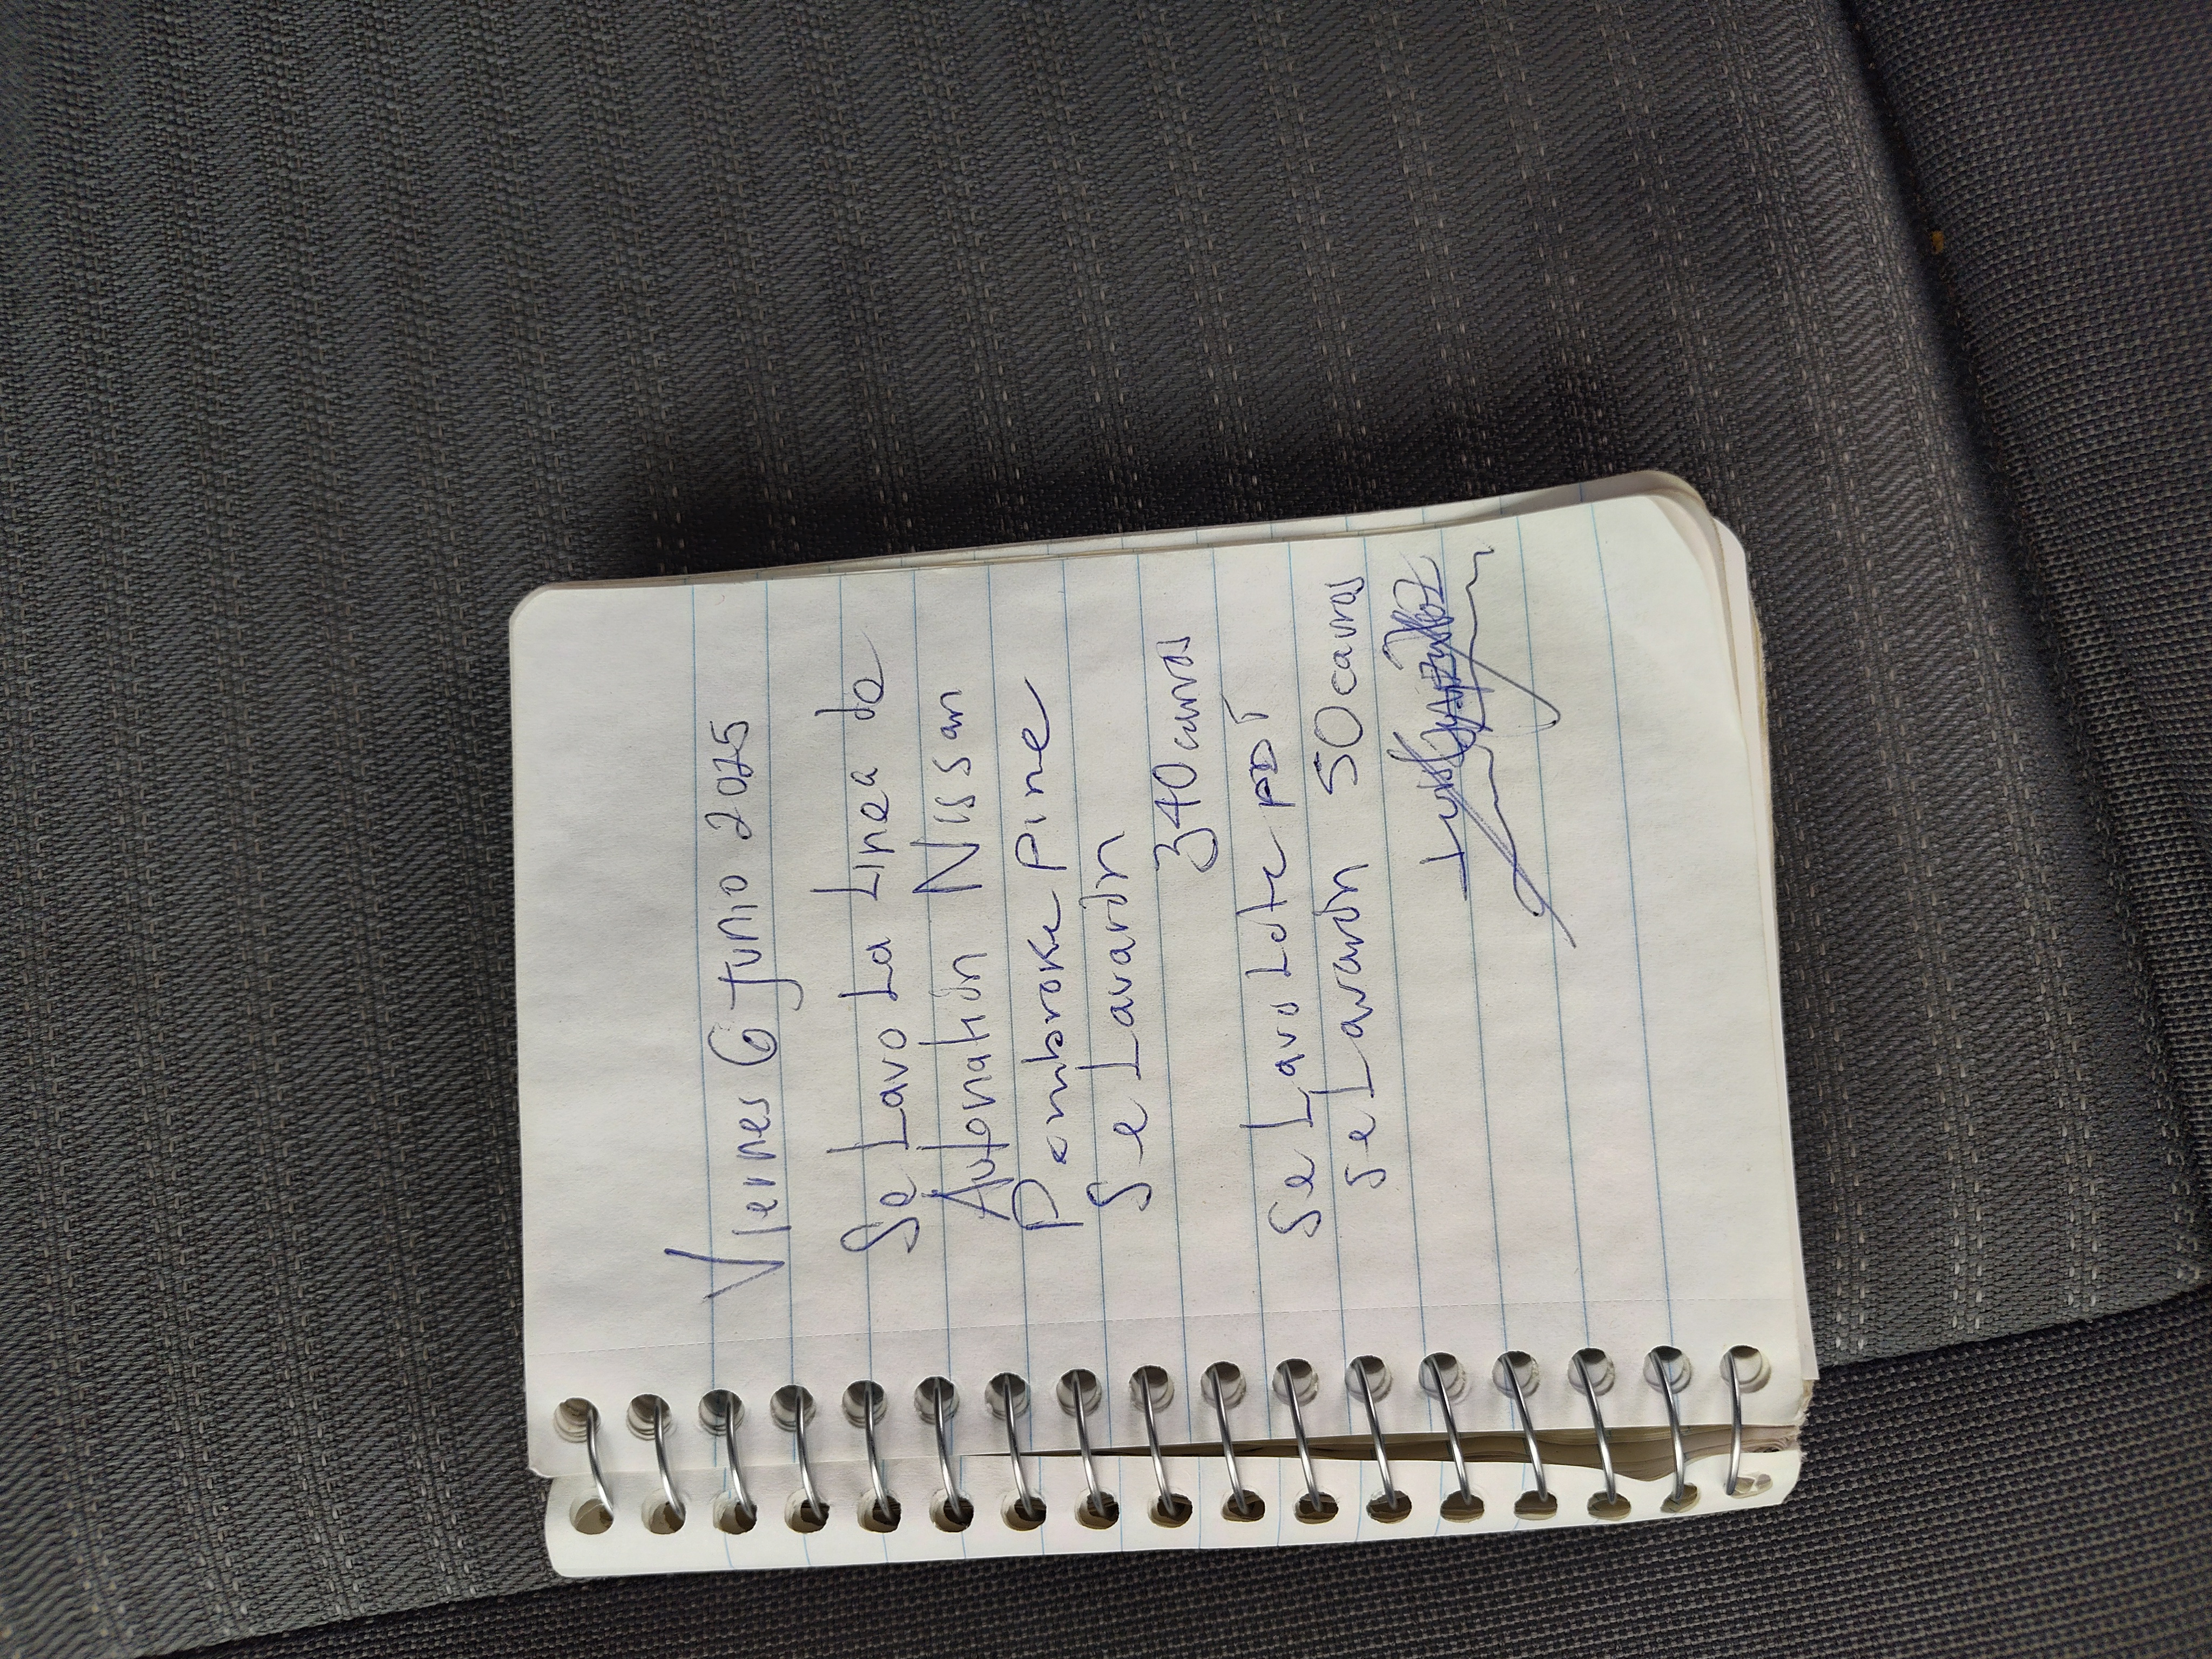 Viernes 6 Junio 2025
Se Lavo La Linea de
Autonation Nissan
Pembroke Pine
Se Lavarón
340 carros
Se Lavo Lote PDI
Se Lavarón 50 carros